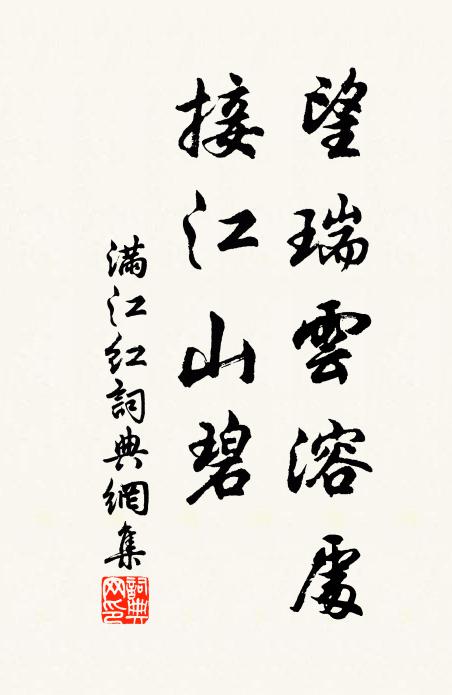 望瑞雲溶處
接江山碧
满江红詞典網集
詞典网印